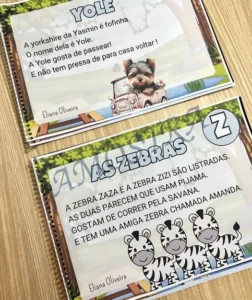 YOLE
A yorkshire da Yasmin é fofinha
O nome dela é Yole.
A Yole gosta de passear!
E não tem pressa de para casa voltar !
Eliana Oliveira
AS ZEBRAS
Z
A ZEBRA ZAZA E A ZEBRA ZIZI SÃO LISTRADAS.
AS DUAS PARECEM QUE USAM PIJAMA.
GOSTAM DE CORRER PELA SAVANA.
E TEM UMA AMIGA ZEBRA CHAMADA AMANDA.
Eliana Oliveira